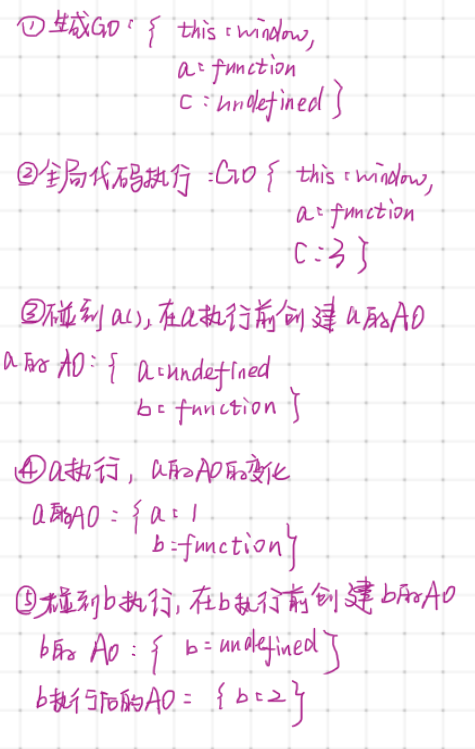 ①生成GO：{ this：window,
a：function
c：undefined }
②全局代码执行：GO { this：window,
a：function
c：3 }
③碰到a(),在a执行前创建a的AO
a的AO：{ a：undefined
b：function }
④a执行，a的AO的变化
a的AO：{ a：1
b：function }
⑤碰到b执行,在b执行前创建b的AO
b的AO：{ b：undefined }
b执行后的AO：{ b：2 }